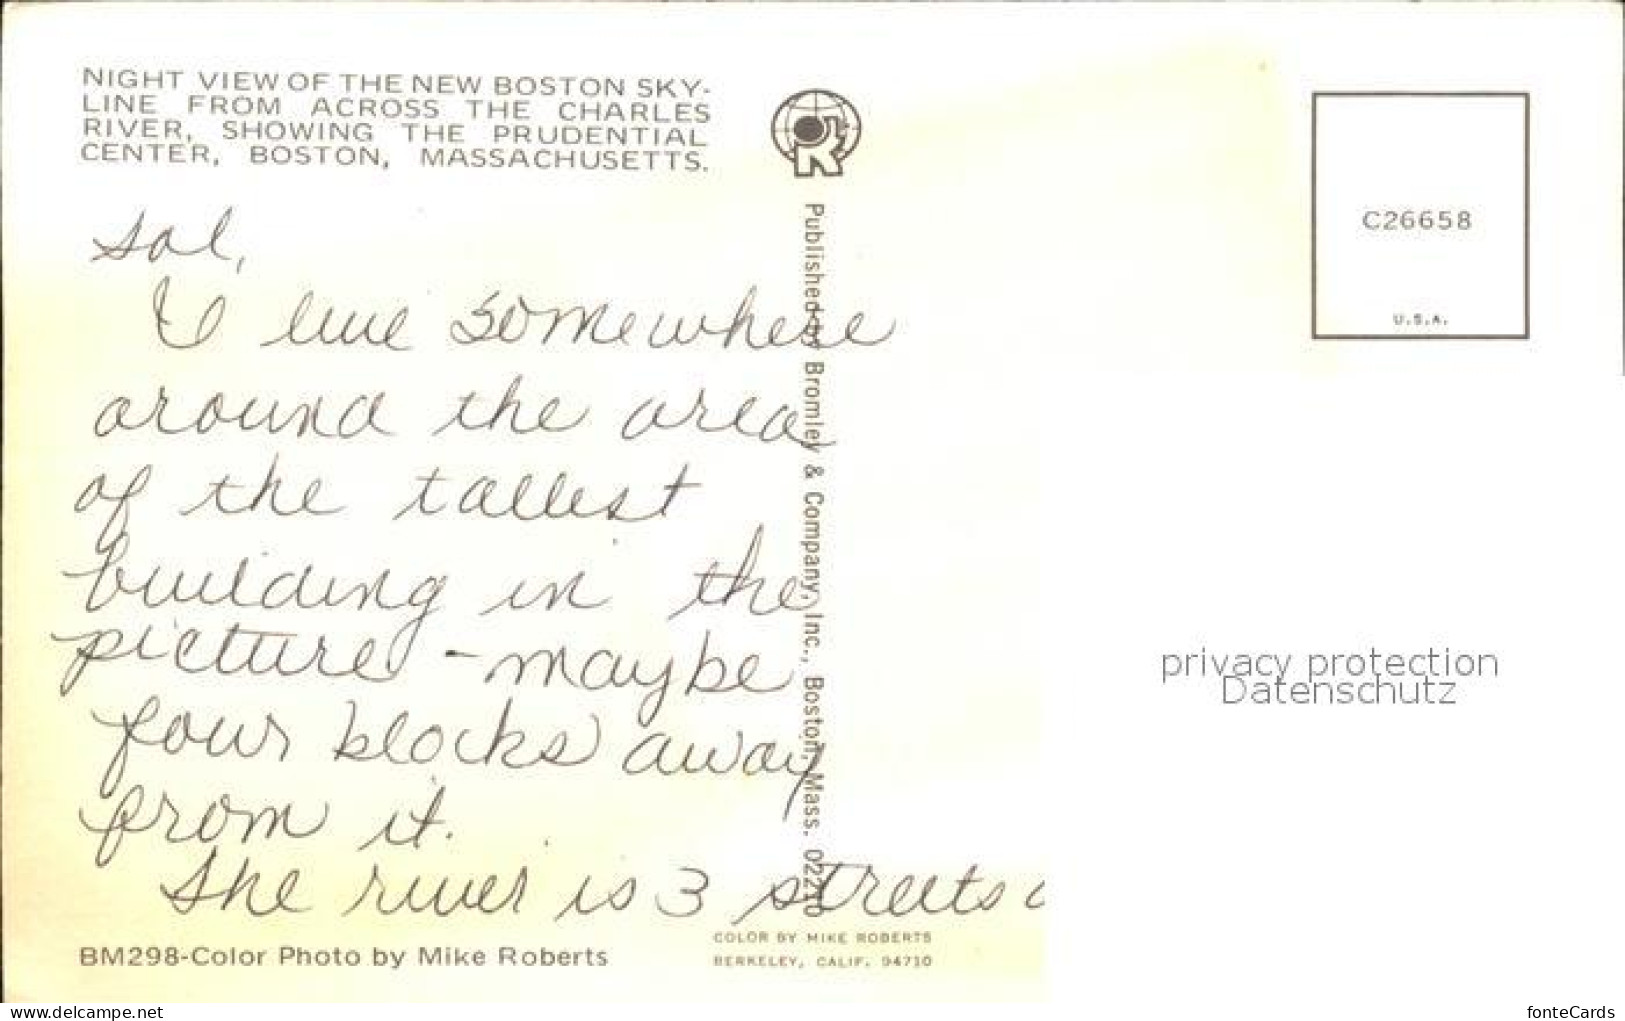 NIGHT VIEW OF THE NEW BOSTON SKY-
LINE FROM ACROSS THE CHARLES
RIVER, SHOWING THE PRUDENTIAL
CENTER, BOSTON, MASSACHUSETTS.
Sal,
I live somewhere
around the area
of the tallest
building in the
picture - maybe
four blocks away
from it.
The river is 3 streets
BM298-Color Photo by Mike Roberts
Published by Bromley & Company, Inc., Boston, Mass. 02210
COLOR BY MIKE ROBERTS
BERKELEY, CALIF. 94710
C26658
U.S.A.
privacy protection
Datenschutz
www.delcampe.net
fonteCards